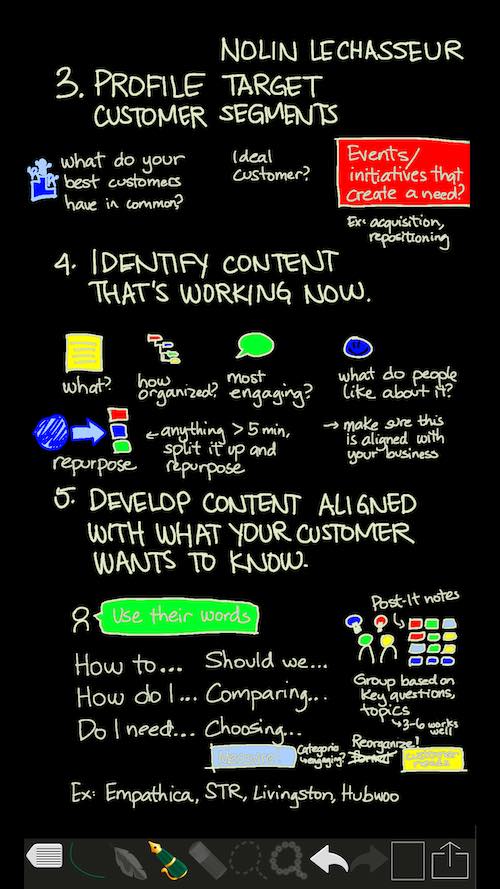 NOLIN LECHASSEUR
3. PROFILE TARGET
CUSTOMER SEGMENTS
what do your
best customers
have in common?
Ideal
customer?
Events/
initiatives that
create a need?
Ex: acquisition,
repositioning
4. IDENTIFY CONTENT
THAT'S WORKING NOW.
what?
how
organized?
most
engaging?
what do people
like about it?
repurpose
anything > 5 min,
split it up and
repurpose
make sure this
is aligned with
your business
5. DEVELOP CONTENT ALIGNED
WITH WHAT YOUR CUSTOMER
WANTS TO KNOW.
Use their words
How to... Should we...
How do I... Comparing...
Do I need... Choosing...
Post-It notes
Group based on
key questions,
topics
3-6 works
well
engaging?
Reorganize!
Ex: Empathica, STR, Livingston, Hubwoo